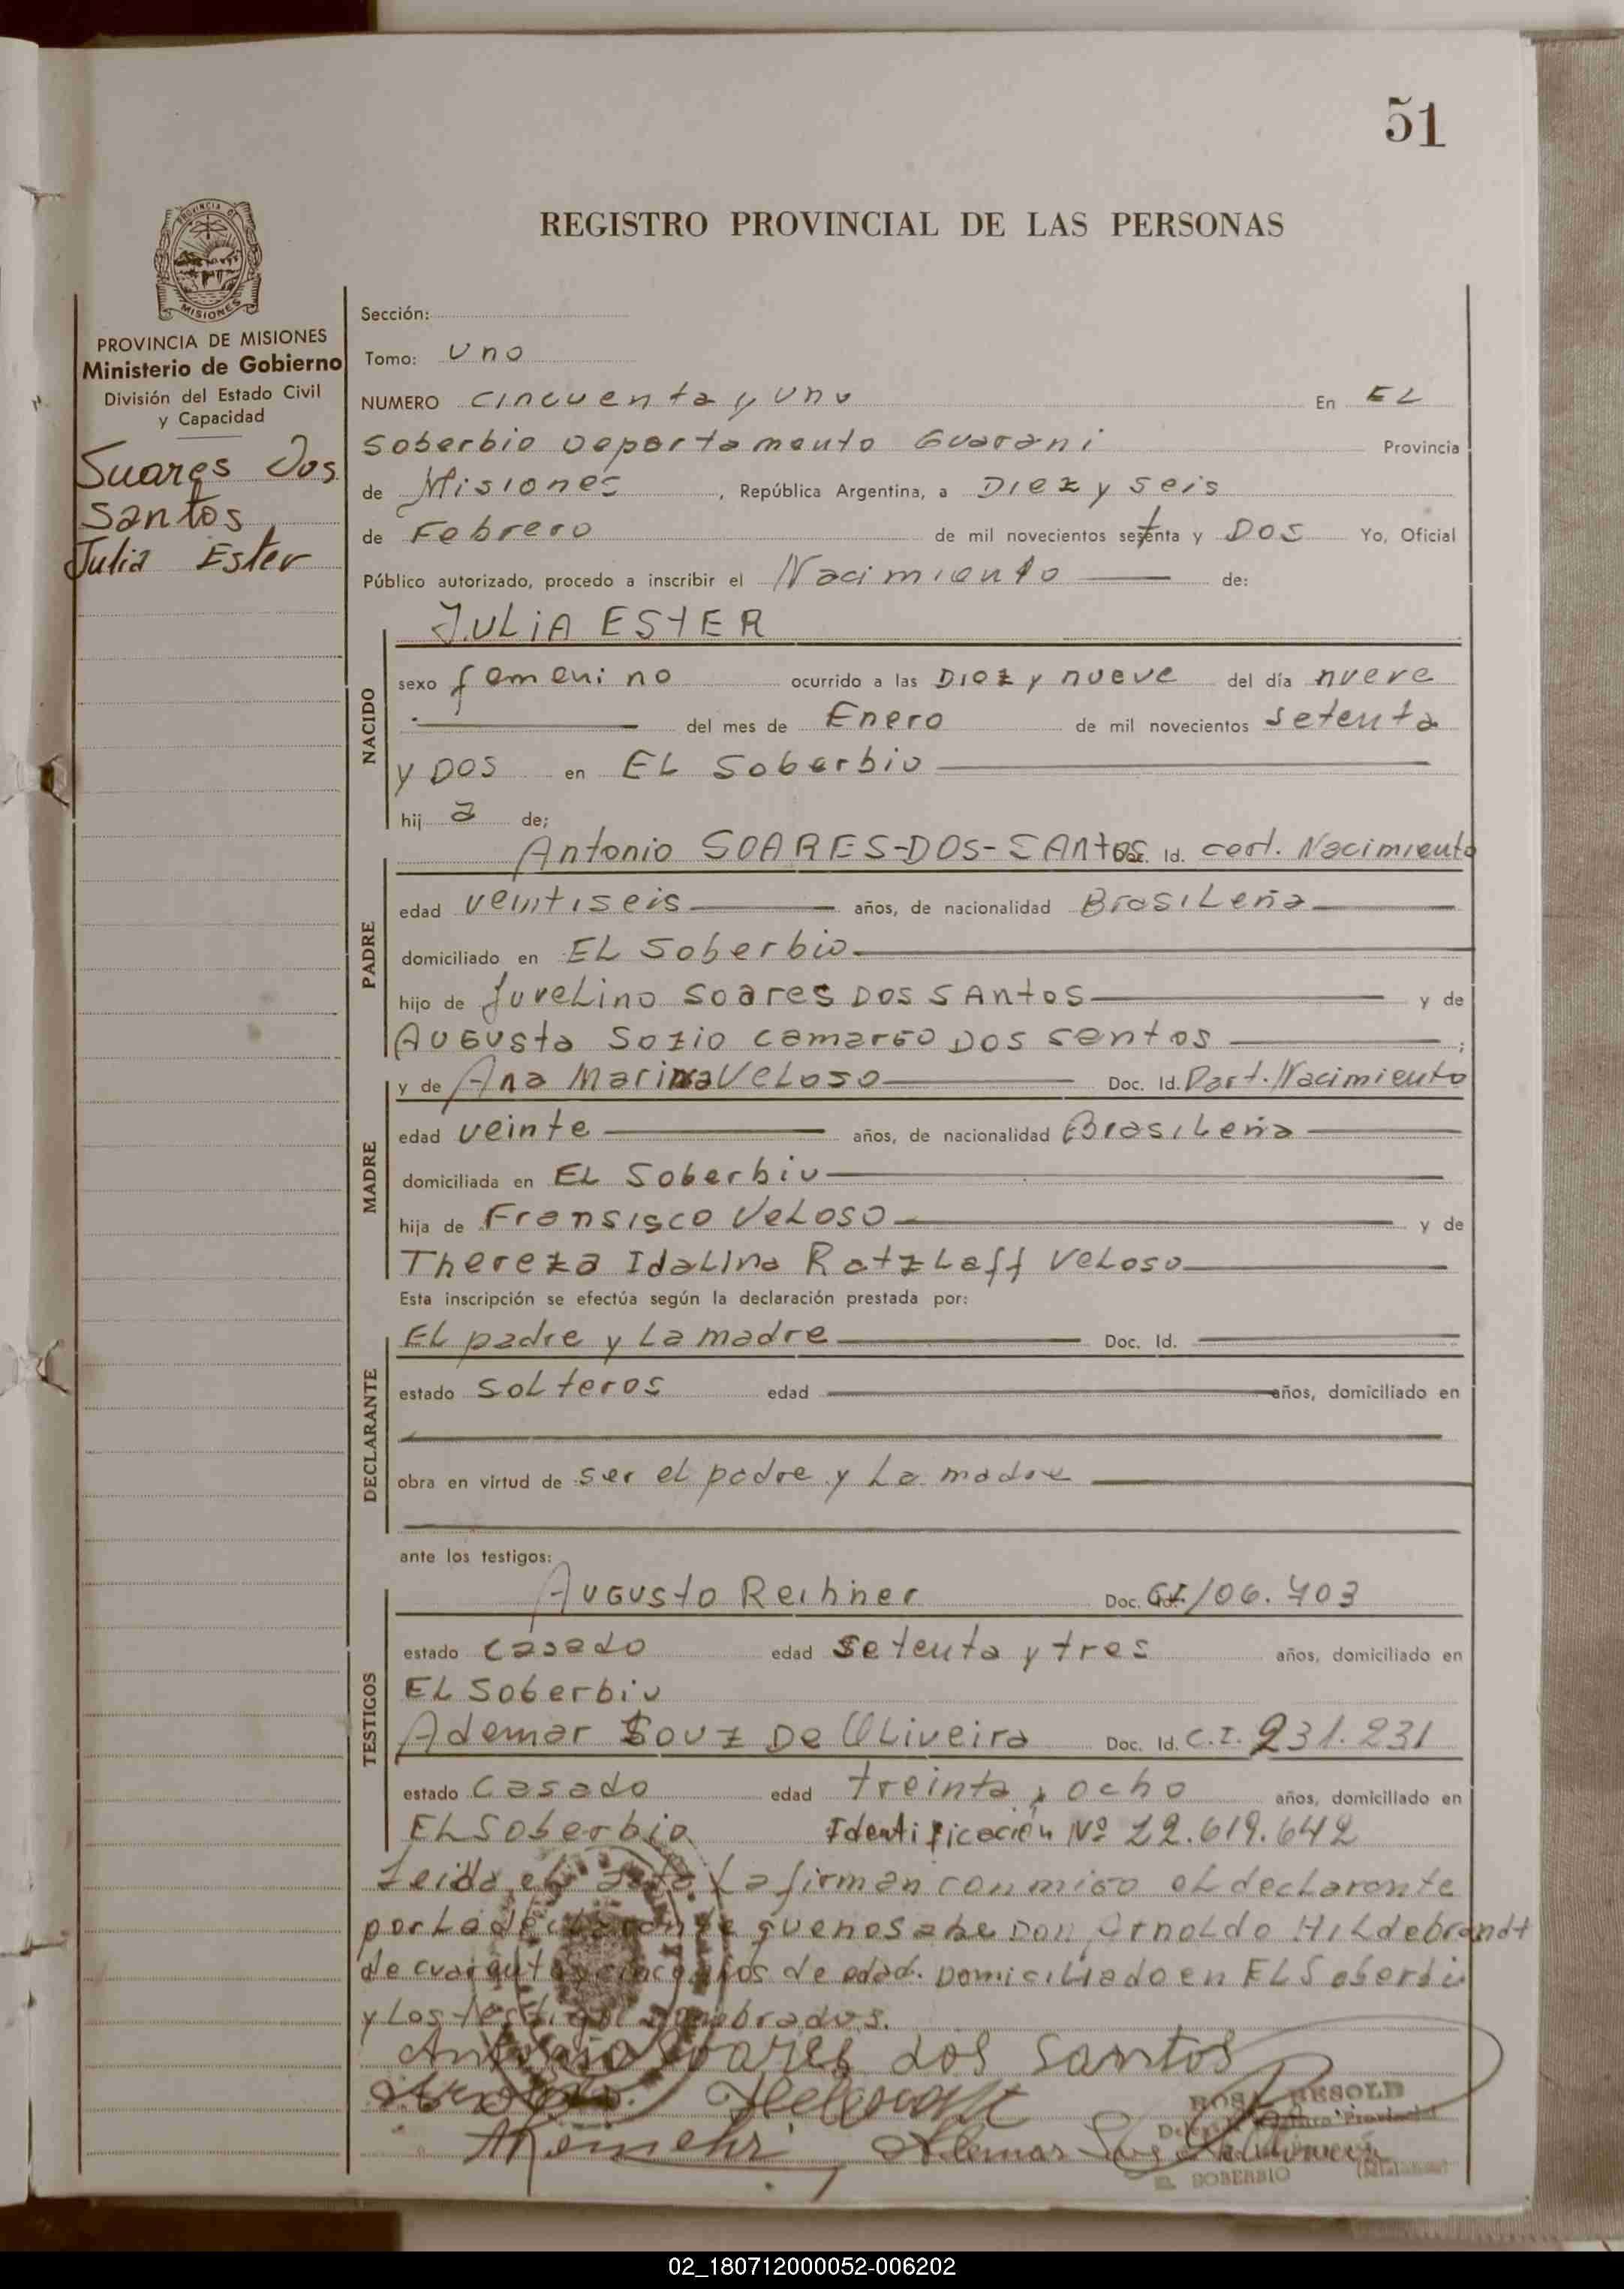 51
REGISTRO PROVINCIAL DE LAS PERSONAS
PROVINCIA DE
MISIONES
PROVINCIA DE MISIONES
Ministerio de Gobierno
División del Estado Civil
y Capacidad
Suares Dos
Santos
Julia Ester
Sección:
Tomo: Uno
NUMERO cincuenta y uno En EL
Soberbio Departamento Guarani Provincia
de Misiones, República Argentina, a Diez y seis
de Febrero de mil novecientos setenta y Dos Yo, Oficial
Público autorizado, procedo a inscribir el Nacimiento de:
JULIA ESTER
NACIDO
sexo femenino ocurrido a las Diez y nueve del día nueve
del mes de Enero de mil novecientos setenta
y Dos en EL Soberbio
hij a de;
Antonio SOARES-DOS-SANtos Doc. Id. cert. Nacimiento
PADRE
edad veintiseis años, de nacionalidad BrasiLeña
domiciliado en EL Soberbio
hijo de JuveLino Soares Dos SAntos y de
AUGUsta Sozio camargo Dos Santos ;
MADRE
y de Ana Marina VeLoso Doc. Id. Part. Nacimiento
edad veinte años, de nacionalidad BrasiLeña
domiciliada en EL Soberbio
hija de Fransisco VeLoso y de
Thereza IdaLina RatzLaff VeLoso
Esta inscripción se efectúa según la declaración prestada por:
DECLARANTE
EL padre y La madre Doc. Id.
estado SoLteros edad años, domiciliado en
obra en virtud de ser el padre y La madre
ante los testigos:
TESTIGOS
AUGUsto Doc. CI/06.703
estado casado edad setenta y tres años, domiciliado en
EL Soberbio
Ademar Souz De OLiveira Doc. Id. C.I. 231.231
estado casado edad treinta y ocho años, domiciliado en
EL Soberbio Identificación Nº 22.619.642
Leida el acta La firman conmigo eL decLarante
por La decLarante que no sabe Don ArnoLdo HiLdebrandt
de cuarenta y cinco años de edad. DomiciLiado en EL Soberbio
y Los testigos nombrados.
Antonio Soares dos Santos
ROSA BESOLD
EL SOBERBIO
02_180712000052-006202